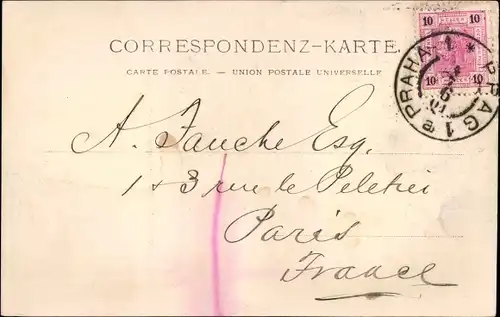 CORRESPONDENZ-KARTE.
CARTE POSTALE. — UNION POSTALE UNIVERSELLE
10 10
10 10
PRAHA 1 * PRAG 1
A. Fauche Esq.
1 & 3 rue le Peletier
Paris
France